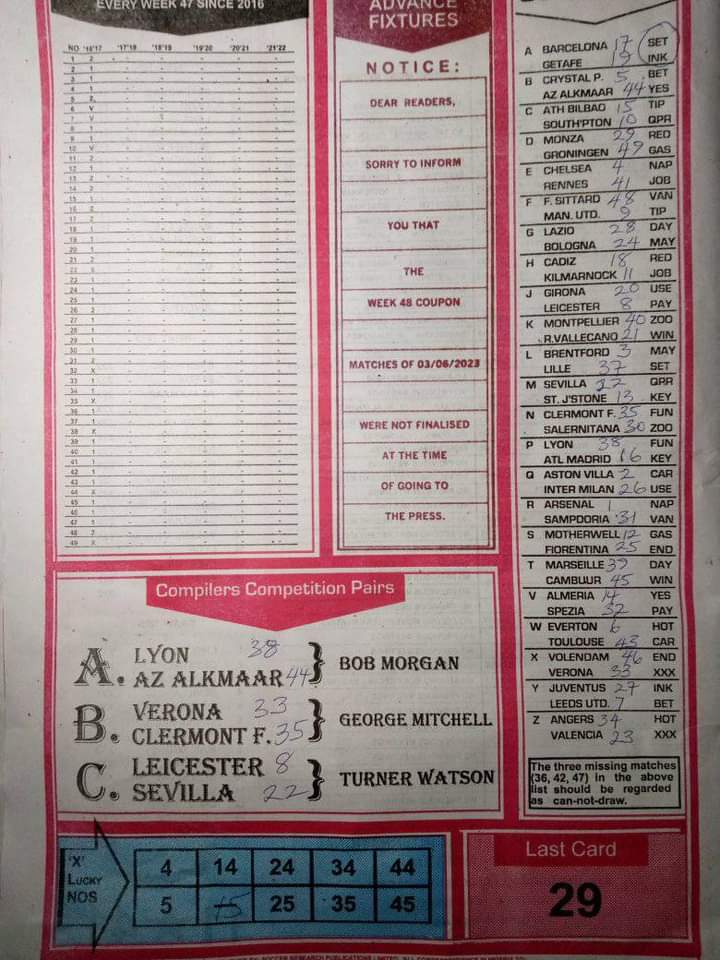 EVERY WEEK 47 SINCE 2016
NO '16'17 '17'18 '18'19 '19'20 '20'21 '21'22
1 2 - - - - -
2 1 - - - - -
3 1 - - - - -
4 1 - - - - -
5 2 - - - - -
6 V - - - - -
7 V - - - - -
8 1 - - - - -
9 1 - - - - -
10 V - - - - -
11 2 - - - - -
12 1 - - - - -
13 2 - - - - -
14 2 - - - - -
15 1 - - - - -
16 - - - - -
17 2 - - - - -
18 1 - - - - -
19 1 - - - - -
20 1 - - - - -
21 2 - - - - -
22 - - - - -
23 1 - - - - -
24 1 - - - - -
25 1 - - - - -
26 2 - - - - -
27 1 - - - - -
28 1 - - - - -
29 1 - - - - -
30 1 - - - - -
31 2 - - - - -
32 X - - - - -
33 1 - - - - -
34 1 - - - - -
35 X - - - - -
36 1 - - - - -
37 1 - - - - -
38 X - - - - -
39 1 - - - - -
40 1 - - - - -
41 1 - - - - -
42 1 - - - - -
43 1 - - - - -
44 X - - - - -
45 1 - - - - -
46 1 - - - - -
47 1 - - - - -
48 2 - - - - -
49 X - - - - -
ADVANCE
FIXTURES
NOTICE:
DEAR READERS,
SORRY TO INFORM
YOU THAT
THE
WEEK 48 COUPON
MATCHES OF 03/06/2023
WERE NOT FINALISED
AT THE TIME
OF GOING TO
THE PRESS.
A BARCELONA 17 SET
GETAFE 19 INK
B CRYSTAL P. 5 BET
AZ ALKMAAR 44 YES
C ATH BILBAO 15 TIP
SOUTH'PTON 10 QPR
D MONZA 29 RED
GRONINGEN 49 GAS
E CHELSEA 4 NAP
RENNES 41 JOB
F F. SITTARD 48 VAN
MAN. UTD. 9 TIP
G LAZIO 28 DAY
BOLOGNA 24 MAY
H CADIZ 18 RED
KILMARNOCK 11 JOB
J GIRONA 20 USE
LEICESTER 8 PAY
K MONTPELLIER 40 ZOO
R.VALLECANO 21 WIN
L BRENTFORD 3 MAY
LILLE 37 SET
M SEVILLA 22 QPR
ST. J'STONE 13 KEY
N CLERMONT F. 35 FUN
SALERNITANA 30 ZOO
P LYON 38 FUN
ATL MADRID 16 KEY
Q ASTON VILLA 2 CAR
INTER MILAN 26 USE
R ARSENAL 1 NAP
SAMPDORIA 31 VAN
S MOTHERWELL 12 GAS
FIORENTINA 25 END
T MARSEILLE 39 DAY
CAMBUUR 45 WIN
V ALMERIA 14 YES
SPEZIA 32 PAY
W EVERTON 6 HOT
TOULOUSE 43 CAR
X VOLENDAM 46 END
VERONA 33 XXX
Y JUVENTUS 27 INK
LEEDS UTD. 7 BET
Z ANGERS 34 HOT
VALENCIA 23 XXX
The three missing matches
(36, 42, 47) in the above
list should be regarded
as can-not-draw.
Compilers Competition Pairs
A. LYON 38
AZ ALKMAAR 44 } BOB MORGAN
B. VERONA 33
CLERMONT F. 35 } GEORGE MITCHELL
C. LEICESTER 8
SEVILLA 22 } TURNER WATSON
'X'
LUCKY
NOS
4 14 24 34 44
5 15 25 35 45
Last Card
29